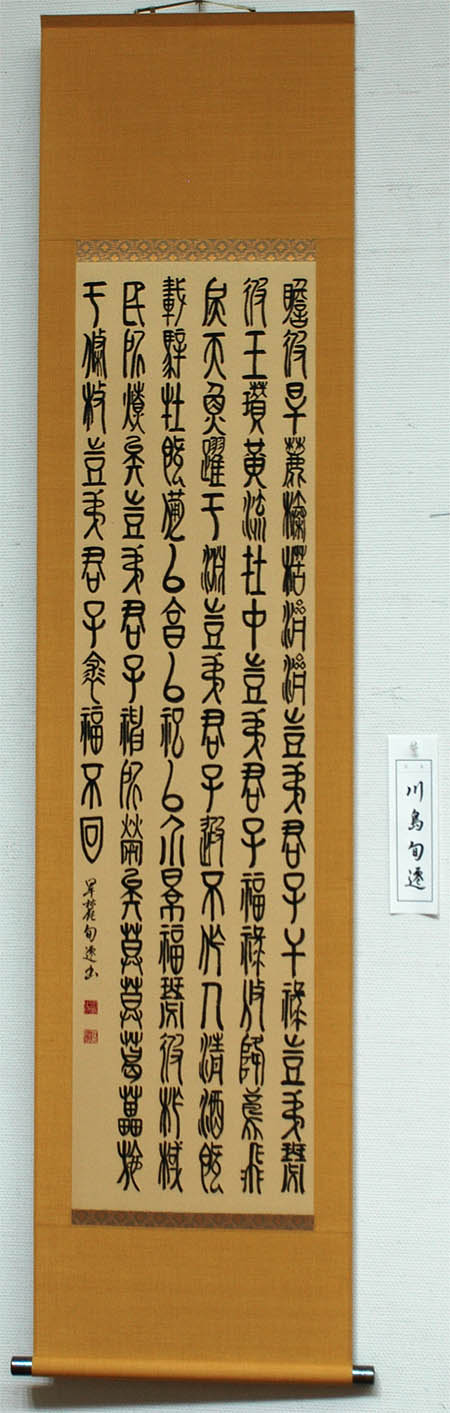 瞻彼旱麓榛楛濟濟豈弟君子干祿豈弟瑟
彼玉瓚黃流在中豈弟君子福祿攸降鳶飛
戾天魚躍于淵豈弟君子遐不作人清酒既
載騂牡既備以享以祀以介景福瑟彼柞棫
民所燎矣豈弟君子神所勞矣莫莫葛藟施
于條枚豈弟君子求福不回
旱麓旬遷書
川島旬遷